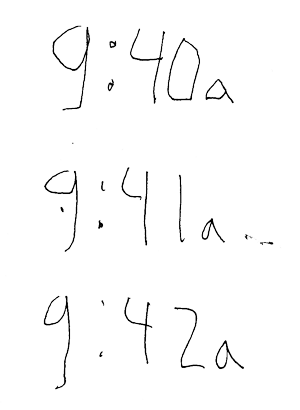 9:40a
9:41a
9:42a